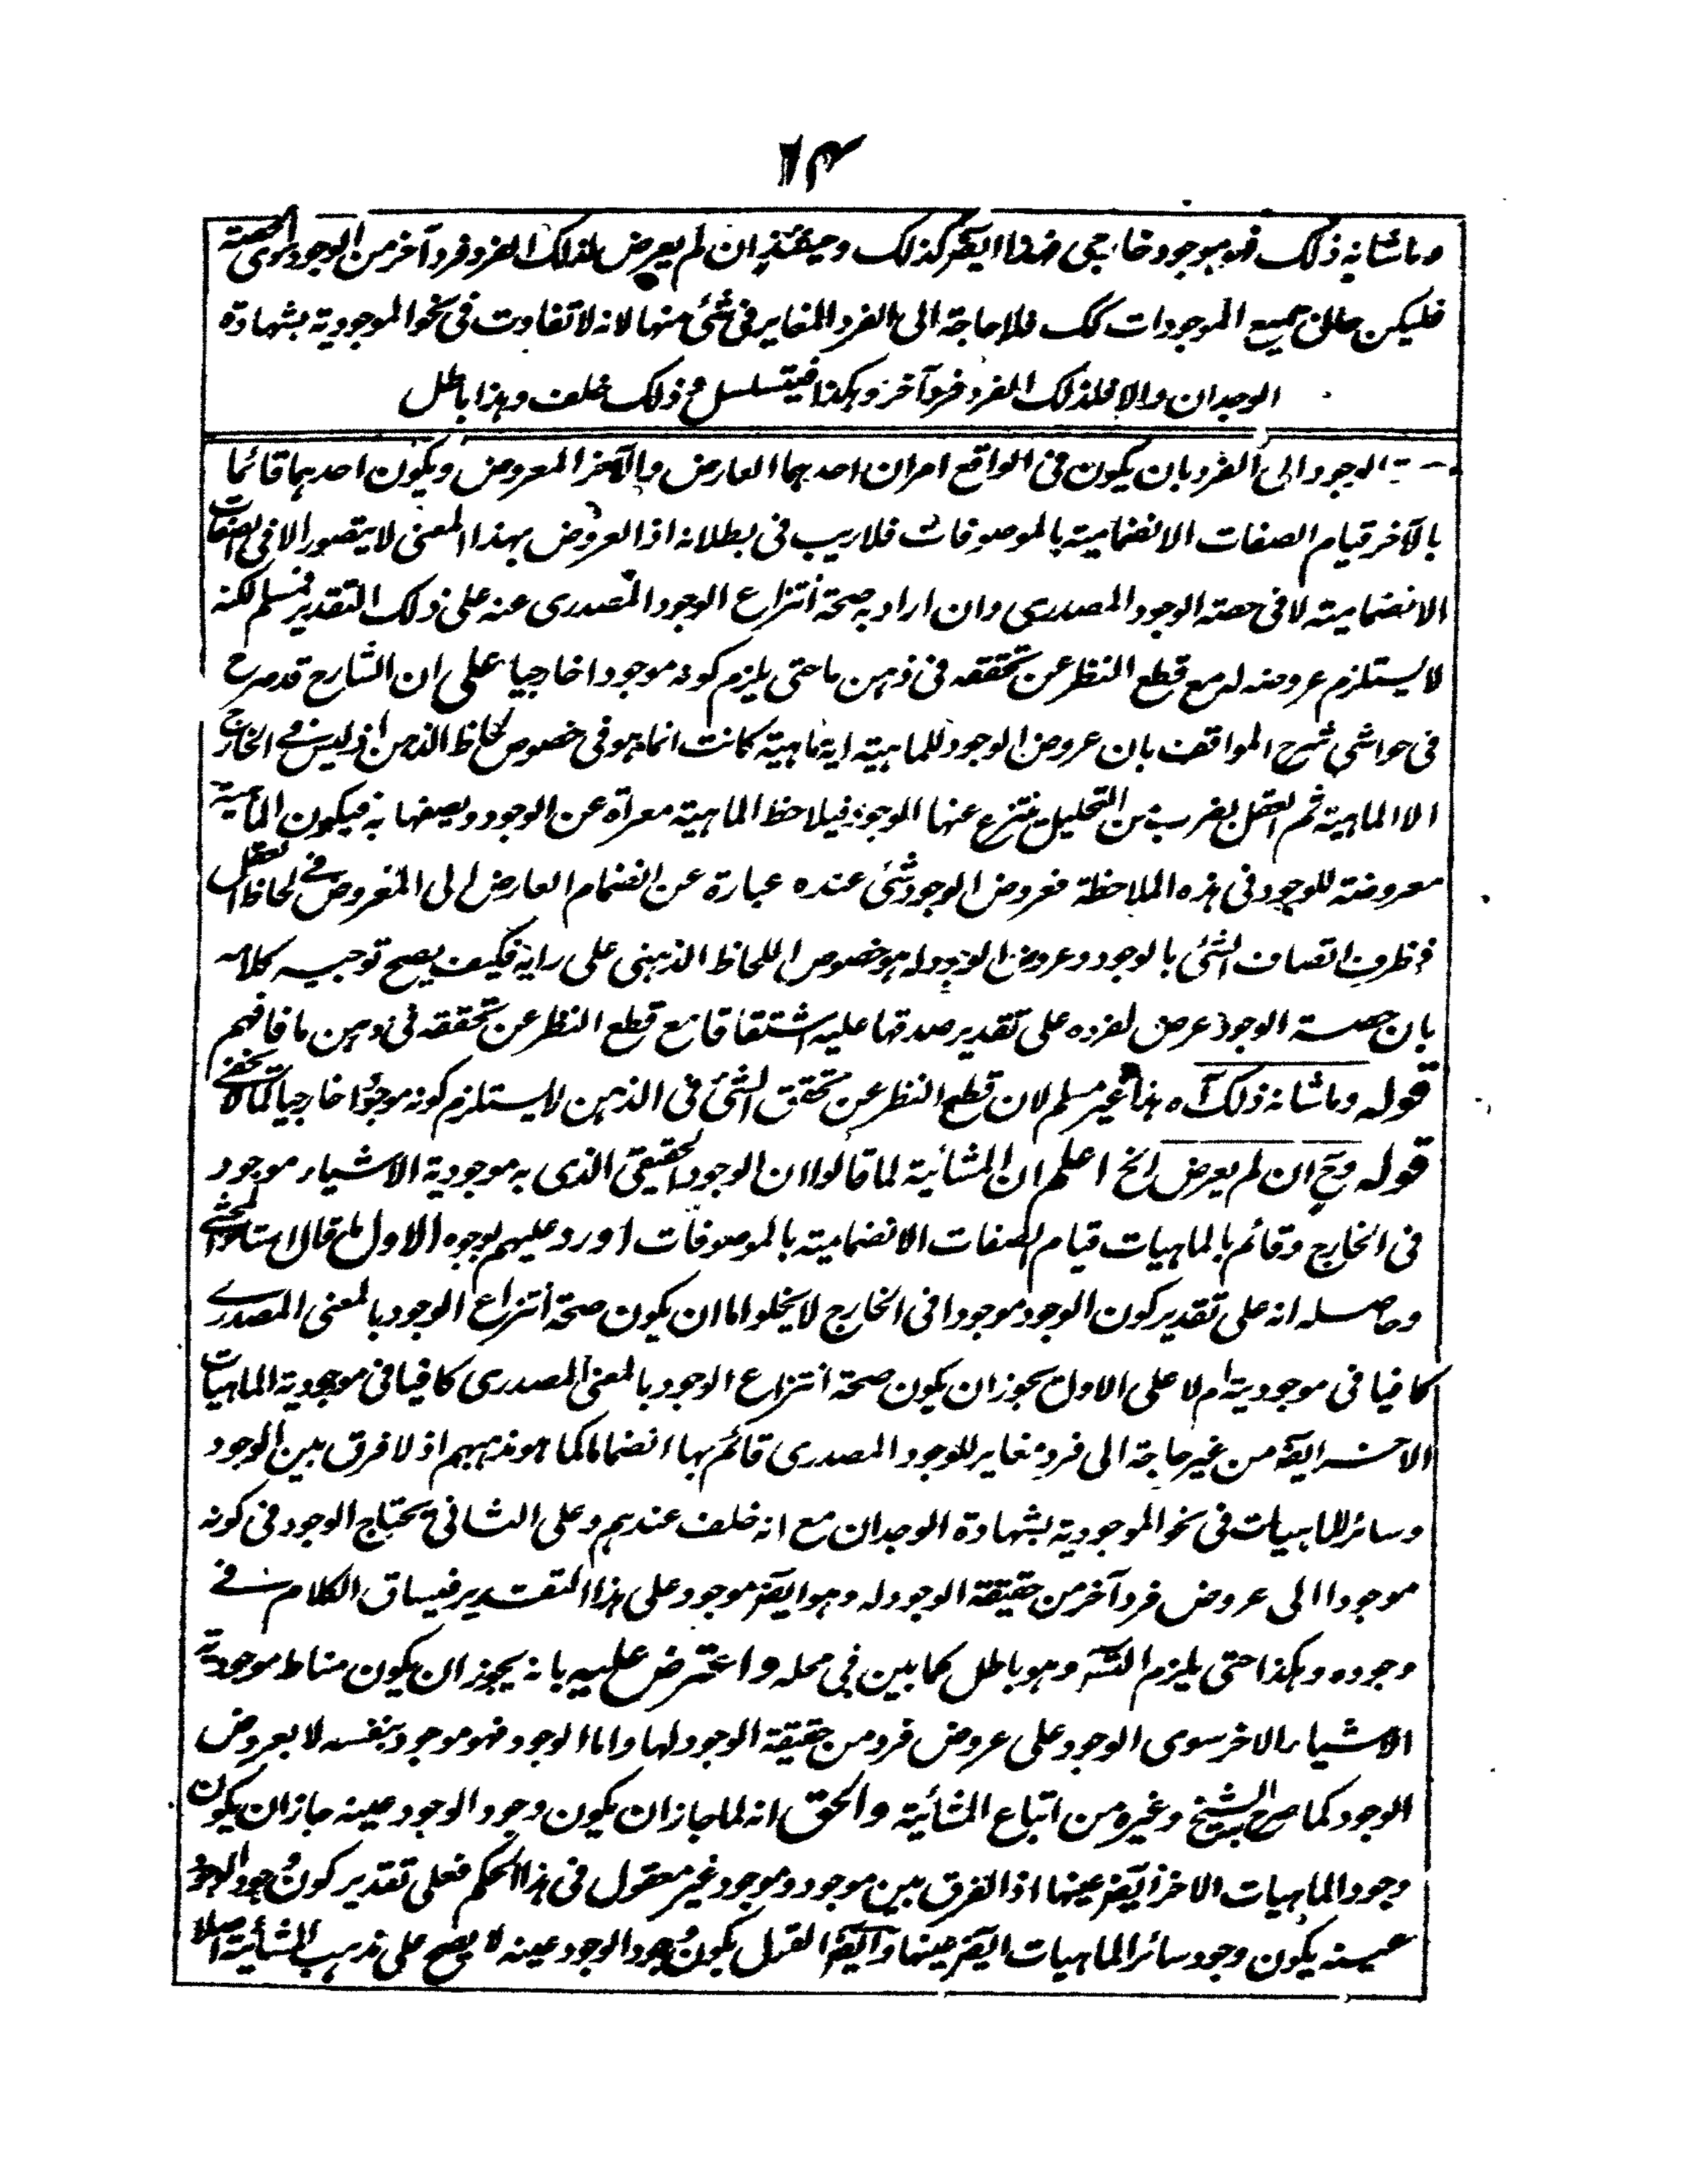 ١٣
وما شانه ذلك فهو موجود خارجي فهذا ايضا كذلك وحينئذ ان لم يعرض لذلك الفرد فرد آخر من الوجود سوى الحصة
فليكن حال جميع الموجودات كك فلا حاجة الى الفرد المغاير في شئ منها لانه لا تفاوت في نحو الموجودية بشهادة
الوجدان والا فلذلك الفرد فرد آخر وهكذا فيتسلسل مع ذلك خلف وهذا باطل
الوجود الى الفرد بان يكون في الواقع امران احدهما العارض والآخر المعروض ويكون احدهما قائما
بالآخر قيام الصفات الانضمامية بالموصوفات فلا ريب في بطلانه اذ العروض بهذا المعنى لا يتصور الا في الصفات
الانضمامية لا في حصة الوجود المصدري وان اراد به صحة انتزاع الوجود المصدري عنه على ذلك التقدير فمسلم لكنه
لا يستلزم عروضه له مع قطع النظر عن تحققه في ذهن ما حتى يلزم كونه موجودا خارجيا على ان الشارح قد صرح
في حواشي شرح المواقف بان عروض الوجود للماهية اية ماهية كانت انما هو في خصوص لحاظ الذهن اذ ليس في الخارج
الا الماهية ثم العقل بضرب من التحليل ينتزع عنها الوجود فيلاحظ الماهية معراة عن الوجود ويصفها به فيكون الماهية
معروضة للوجود في هذه الملاحظة فعروض الوجود شئ عنده عبارة عن انضمام العارض الى المعروض في لحاظ العقل
فظرف اتصاف الشئ بالوجود وعروض الوجود له هو خصوص اللحاظ الذهني على رايه فكيف يصح توجيه كلامه
بان حصة الوجود عرض لفرده على تقدير صدقها عليه اشتقاقا مع قطع النظر عن تحققه في ذهن ما فافهم
قوله وما شانه ذلك آه هذا غير مسلم لان قطع النظر عن تحقق الشئ في الذهن لا يستلزم كونه موجودا خارجيا كما لا يخفى
قوله وح ان لم يعرض الخ اعلم ان المشائية لما قالوا ان الوجود الحقيقي الذي به موجودية الاشياء موجود
في الخارج وقائم بالماهيات قيام الصفات الانضمامية بالموصوفات اورد عليهم بوجوه الاول ما قال استاذ المحشي
وحاصله انه على تقدير كون الوجود موجودا في الخارج لا يخلو اما ان يكون صحة انتزاع الوجود بالمعنى المصدري
كافيا في موجوديته ام لا على الاول يجوز ان يكون صحة انتزاع الوجود بالمعنى المصدري كافيا في موجودية الماهيات
الاخر ايضا من غير حاجة الى فرد مغاير للوجود المصدري قائم بها انضماما كما هو مذهبهم اذ لا فرق بين الوجود
وسائر الماهيات في نحو الموجودية بشهادة الوجدان مع انه خلف عندهم وعلى الثاني يحتاج الوجود في كونه
موجودا الى عروض فرد آخر من حقيقة الوجود له وهو ايضا موجود على هذا التقدير فيساق الكلام في
وجوده وهكذا حتى يلزم التسلسل وهو باطل كما بين في محله واعترض عليه بانه يجوز ان يكون مناط موجودية
الاشياء الاخر سوى الوجود على عروض فرد من حقيقة الوجود لها واما الوجود فهو موجود بنفسه لا بعروض
الوجود كما صرح به الشيخ وغيره من اتباع المشائية والحق انه لما جاز ان يكون وجود الوجود عينه جاز ان يكون
وجود الماهيات الاخر ايضا عينها اذ الفرق بين موجود وموجود غير معقول في هذا الحكم فعلى تقدير كون وجود الوجود
عينه يكون وجود سائر الماهيات ايضا عينها وايضا القول بكون وجود الوجود عينه لا يصح على مذهب المشائية اصلا